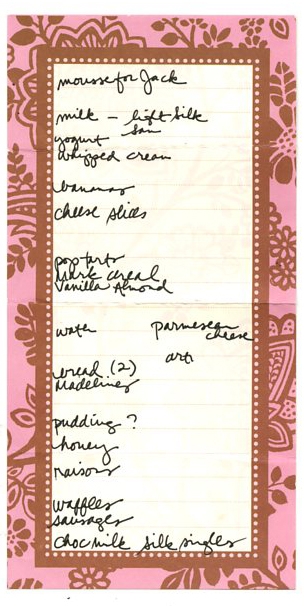 mousse for Jack
milk - light Silk
yogurt
whipped cream
bananas
cheese slices
pop tarts
Mark cereal
Vanilla Almond
water parmesan
cheese
art.
bread (2)
Madelines
pudding ?
honey
raisons
waffles
sausages
choc milk silk singles